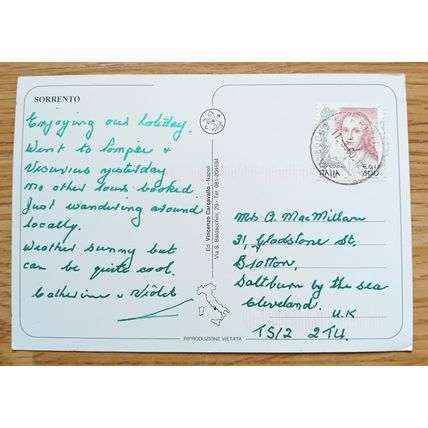 SORRENTO
Enjoying our holiday.
Went to Pompei &
Vesuvius yesterday
no other tours booked
Just wandering around
locally.
Weather sunny but
can be quite cool.
Catherine & Violet
Ed. Vincenzo Carcavallo - Napoli
Via S. Baldacchini, 29 - Tel. 081-204694
ITALIA
800
Mrs A. MacMillan
31, Gladstone St.
Brotton,
Saltburn by the sea
Cleveland.
U.K
TS12 2TU.
RIPRODUZIONE VIETATA